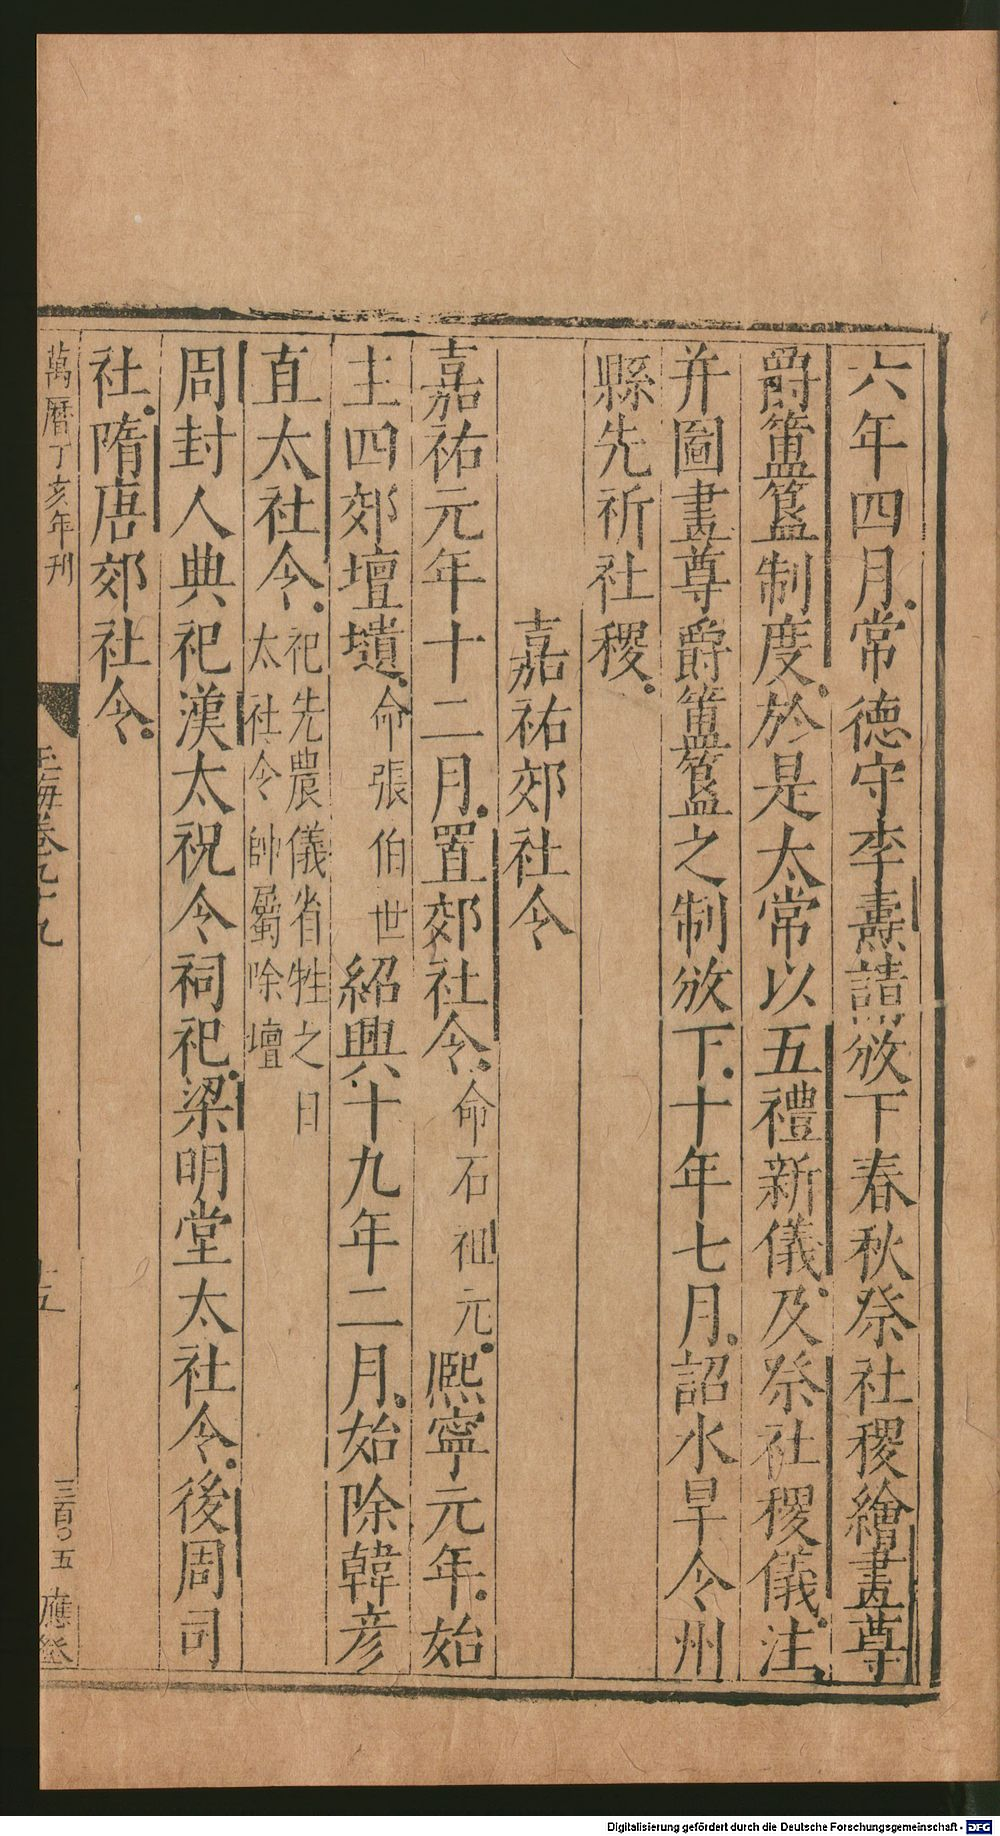 六年四月常德守李燾請放下春秋祭社稷繪畫尊
爵簠簋制度於是太常以五禮新儀及祭社稷儀注
并圖畫尊爵簠簋之制放下十年七月詔水旱令州
縣先祈社稷
嘉祐郊社令
嘉祐元年十二月置郊社令命石祖元熈寧元年始
主四郊壇壝命張伯世紹興十九年二月始除韓彦
直太社令祀先農儀省牲之日
太社令帥屬除壇
周封人典祀漢太祝令祠祀梁明堂太社令後周司
社隋唐郊社令
萬曆丁亥年刊
玉海卷九十九
十五
三百〇五
應登
Digitalisierung gefördert durch die Deutsche Forschungsgemeinschaft - DFG